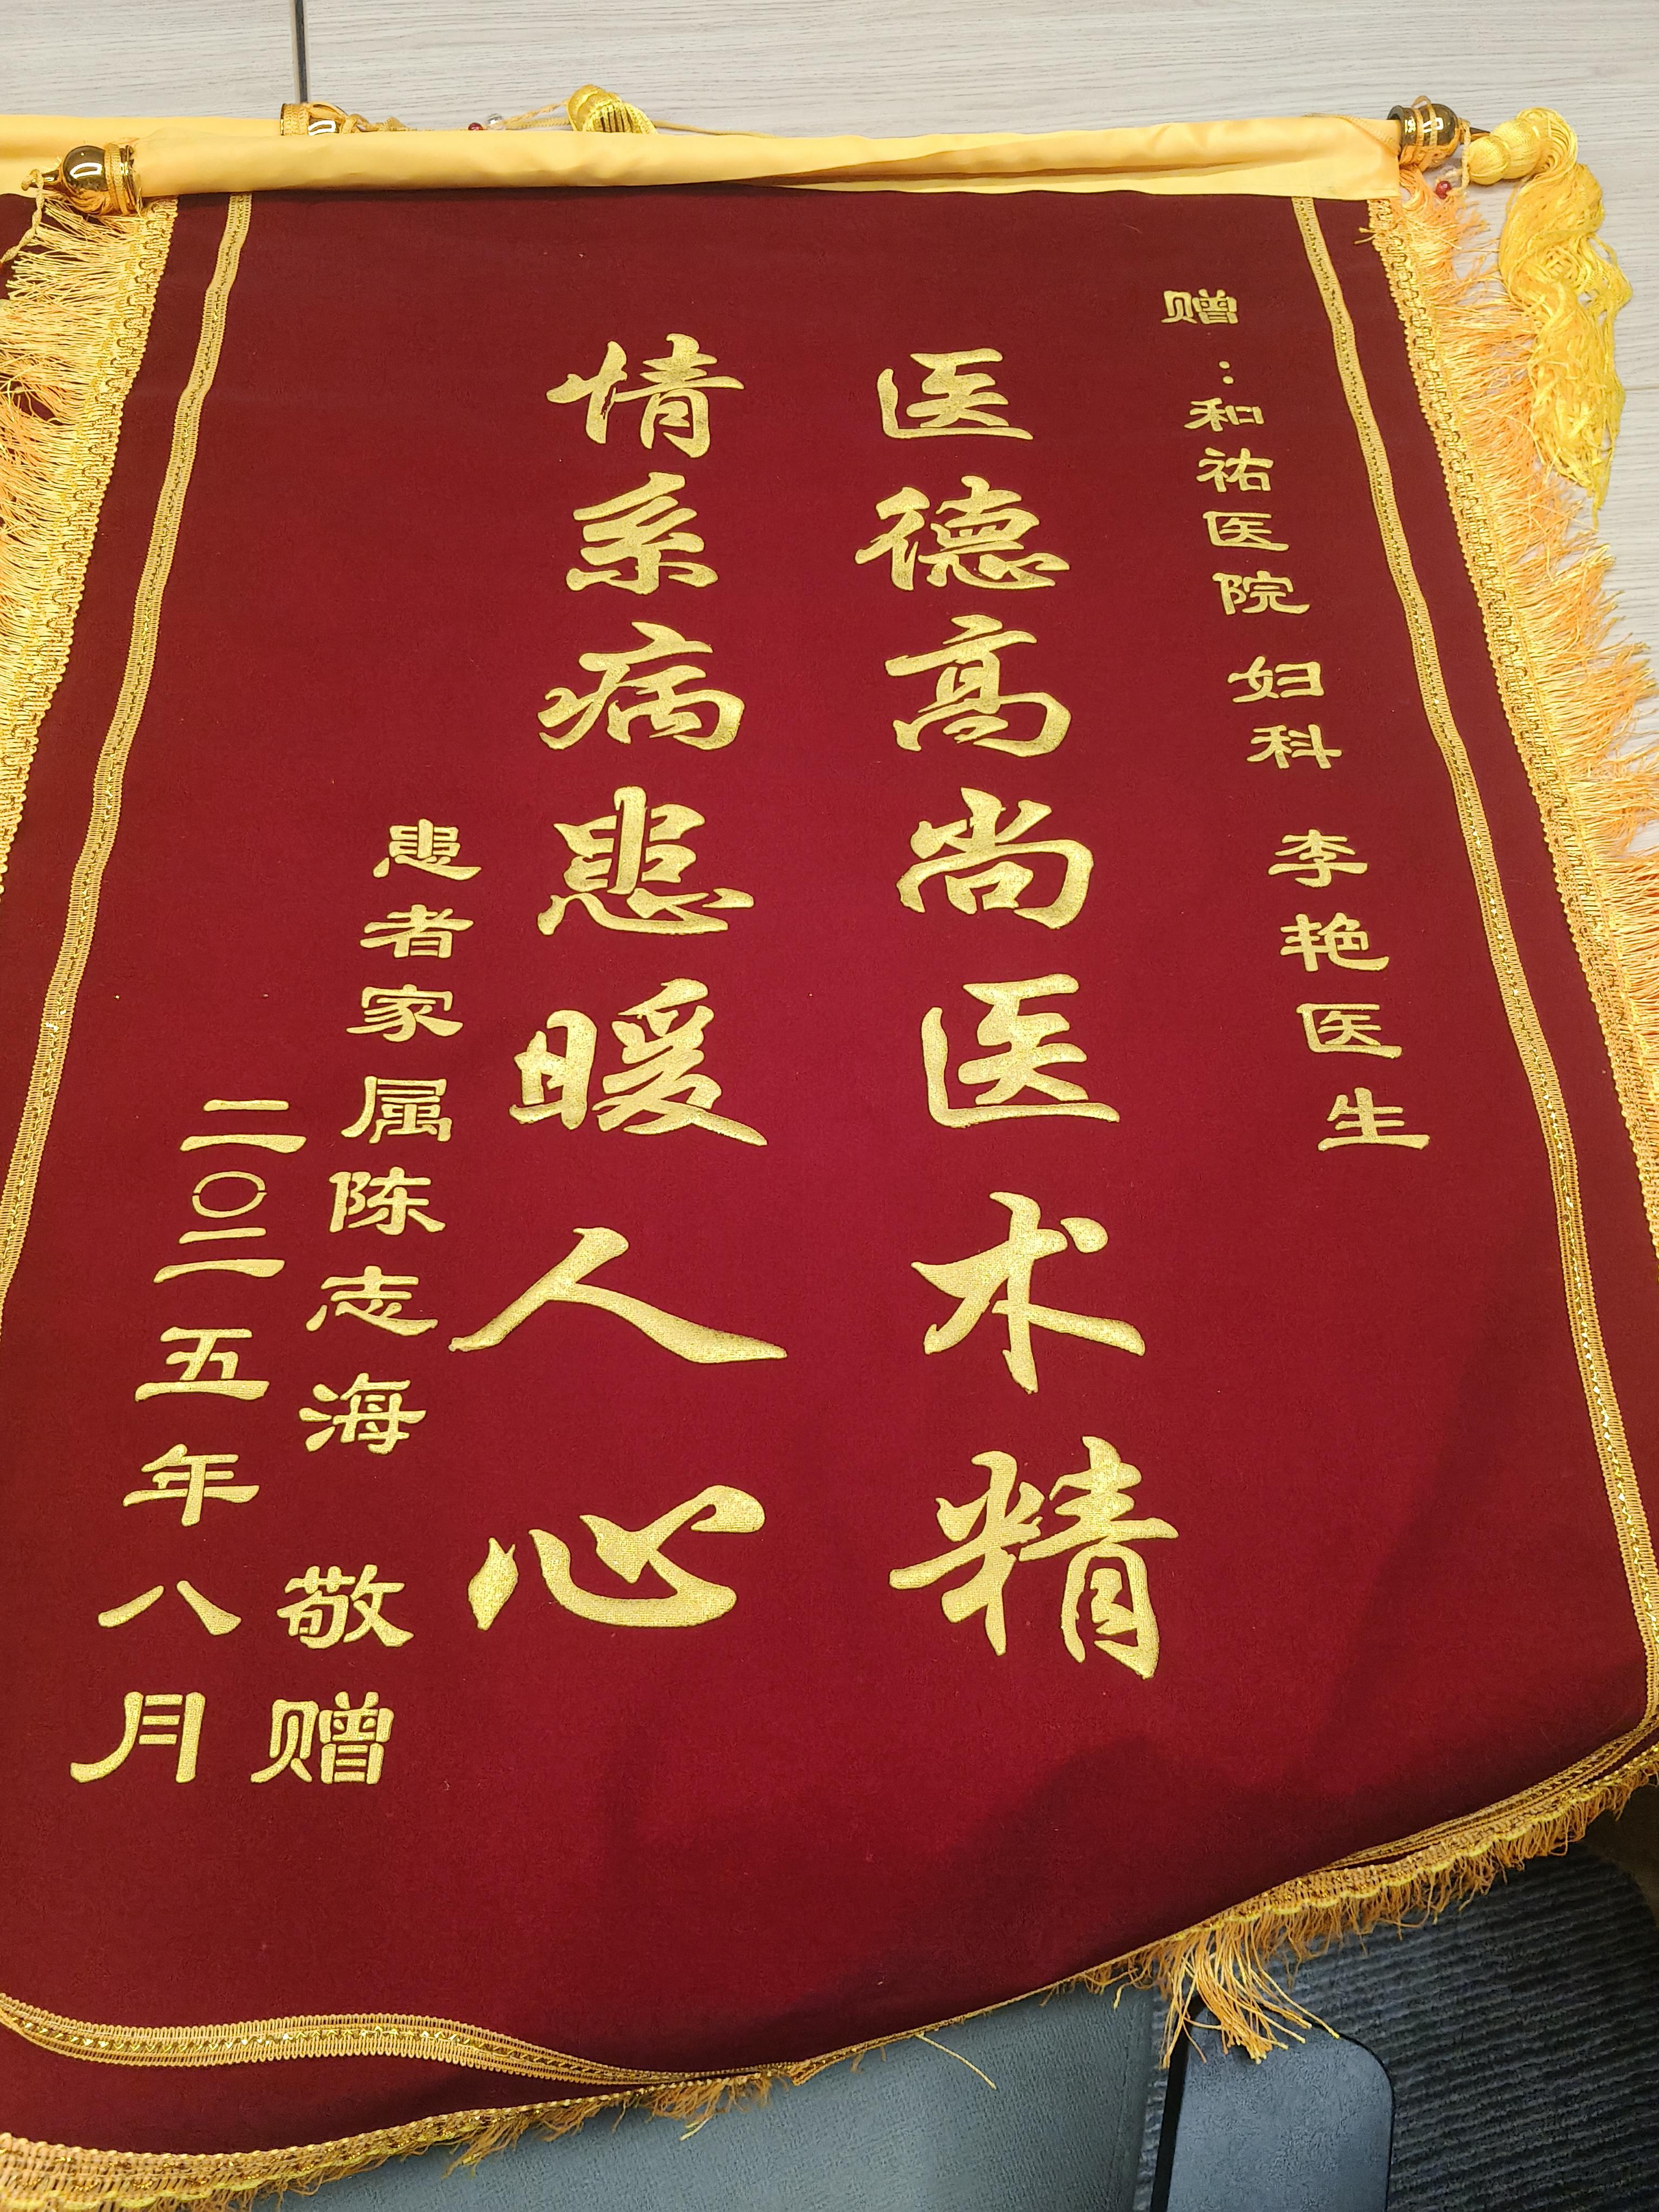 赠：和祐医院 妇科 李艳医生
医德高尚医术精
情系病患暖人心
患者家属陈志海 敬赠
二〇二五年八月